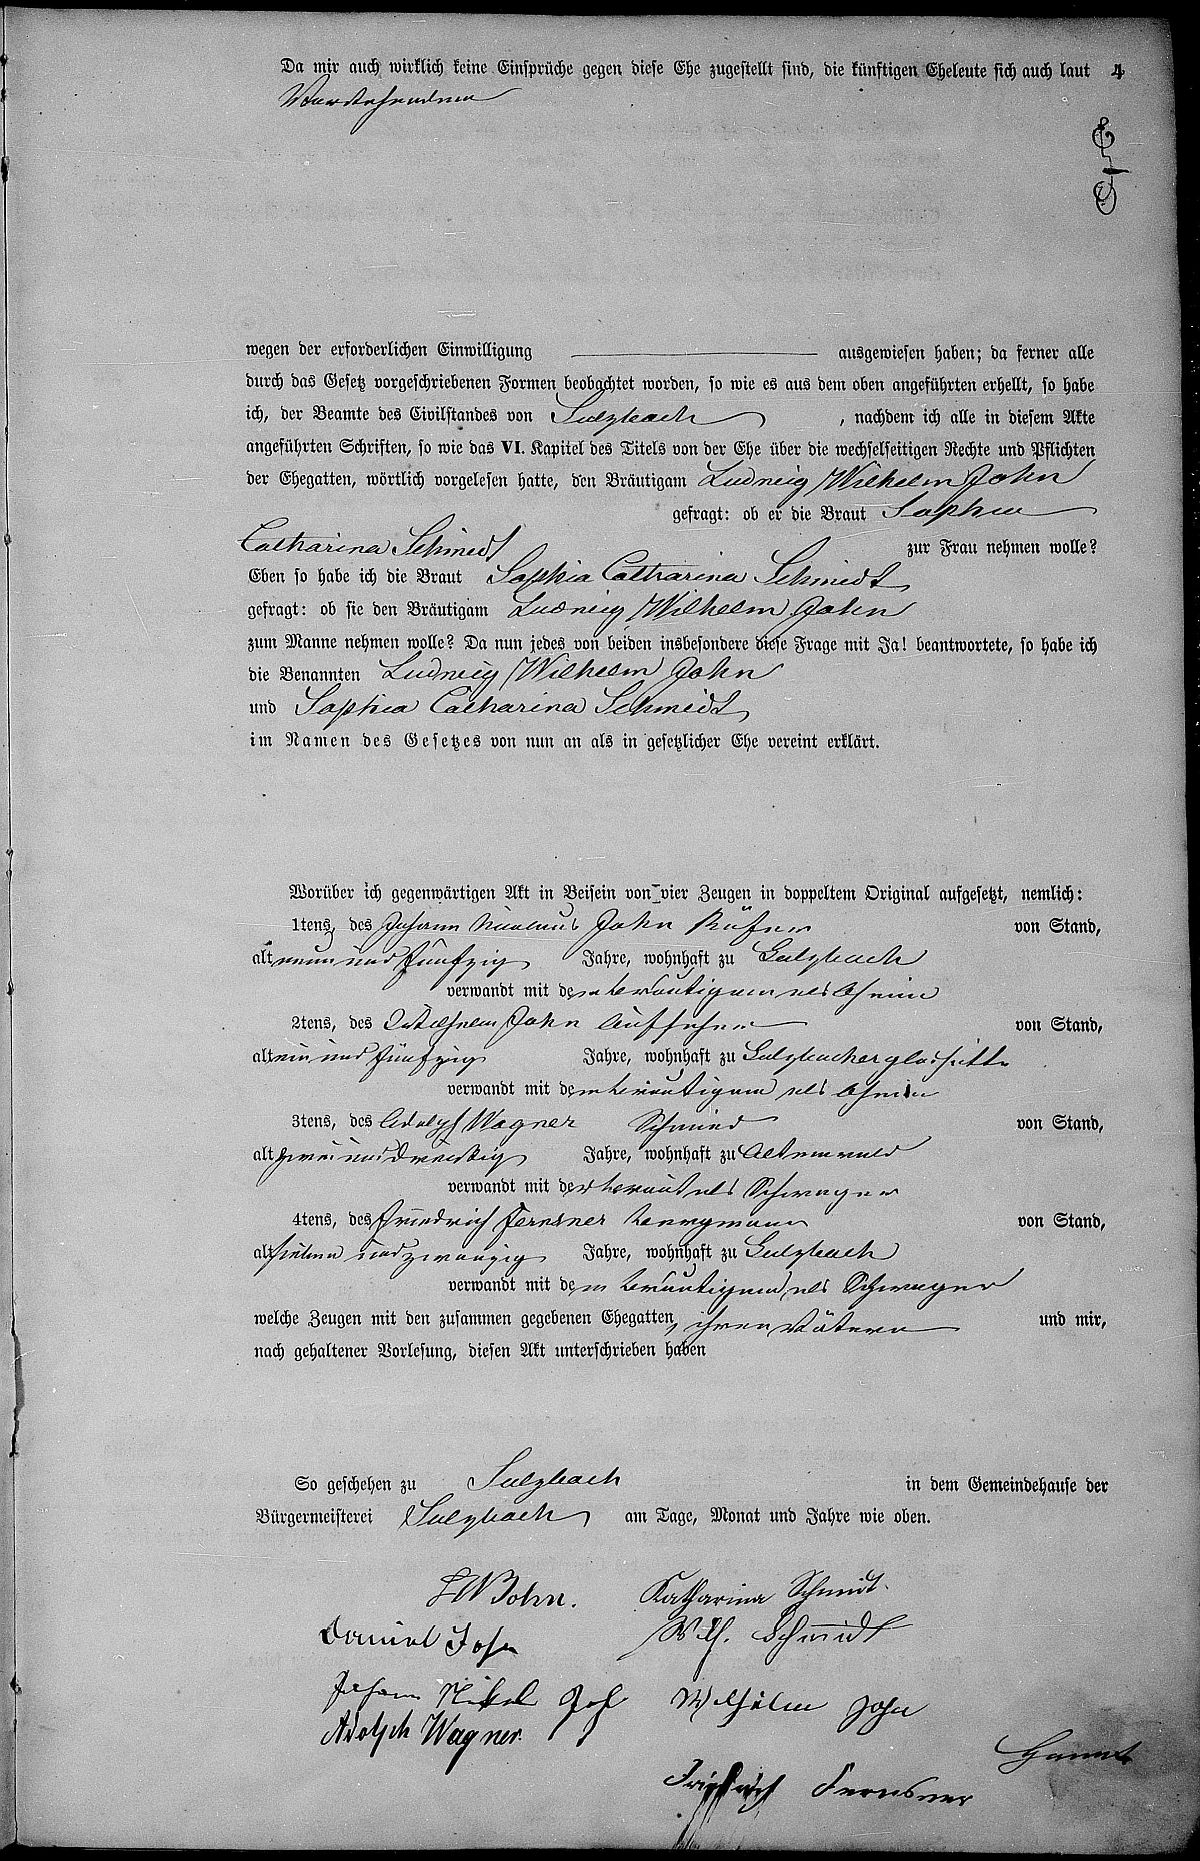 Da mir auch wirklich keine Einsprüche gegen diese Ehe zugestellt sind, die künftigen Eheleute sich auch laut 4
Vorstehendem
wegen der erforderlichen Einwilligung ausgewiesen haben; da ferner alle
durch das Gesetz vorgeschriebenen Formen beobachtet worden, so wie es aus dem oben angeführten erhellt, so habe
ich, der Beamte des Civilstandes von Sulzbach , nachdem ich alle in diesem Akte
angeführten Schriften, so wie das VI. Kapitel des Titels von der Ehe über die wechselseitigen Rechte und Pflichten
der Ehegatten, wörtlich vorgelesen hatte, den Bräutigam Ludwig Wilhelm John
gefragt: ob er die Braut Sophia
Catharina Schmidt zur Frau nehmen wolle?
Eben so habe ich die Braut Sophia Catharina Schmidt
gefragt: ob sie den Bräutigam Ludwig Wilhelm John
zum Manne nehmen wolle? Da nun jedes von beiden insbesondere diese Frage mit Ja! beantwortete, so habe ich
die Benannten Ludwig Wilhelm John
und Sophia Catharina Schmidt
im Namen des Gesetzes von nun an als in gesetzlicher Ehe vereint erklärt.
Worüber ich gegenwärtigen Akt in Beisein von vier Zeugen in doppeltem Original aufgesetzt, nemlich:
1tens, des Johann Nicolaus John Küfer von Stand,
alt neun und fünfzig Jahre, wohnhaft zu Sulzbach
verwandt mit dem Bräutigam als Oheim
2tens, des Wilhelm John Aufseher von Stand,
alt ein und fünfzig Jahre, wohnhaft zu Sulzbacherglashütte
verwandt mit dem Bräutigam als Oheim
3tens, des Adolph Wagner Schmied von Stand,
alt zwei und dreißig Jahre, wohnhaft zu Altenwald
verwandt mit der Braut als Schwager
4tens, des Friedrich Fernsner Bergmann von Stand,
alt sieben und zwanzig Jahre, wohnhaft zu Sulzbach
verwandt mit dem Bräutigam als Schwager
welche Zeugen mit den zusammen gegebenen Ehegatten, ihren Vätern und mir,
nach gehaltener Vorlesung, diesen Akt unterschrieben haben
So geschehen zu Sulzbach in dem Gemeindehause der
Bürgermeisterei Sulzbach am Tage, Monat und Jahre wie oben.
LW John. Katharina Schmidt.
Daniel John Wilh. Schmidt
Johann Nikol Joh Wilhelm John
Adolph Wagner.
Friedrich Fernsner